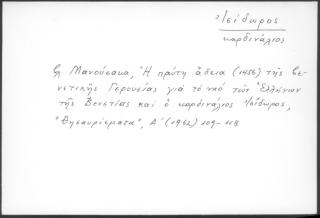 Ἰσίδωρος
καρδινάλιος
Μανούσακα, "Ἡ πρώτη ἄδεια (1456) τῆς βε-
νετικῆς Γερουσίας γιὰ τὸ ναὸ τῶν Ἑλλήνων
τῆς Βενετίας καὶ ὁ καρδινάλιος Ἰσίδωρος,
"Θησαυρίσματα", Α΄ (1962) 109-118